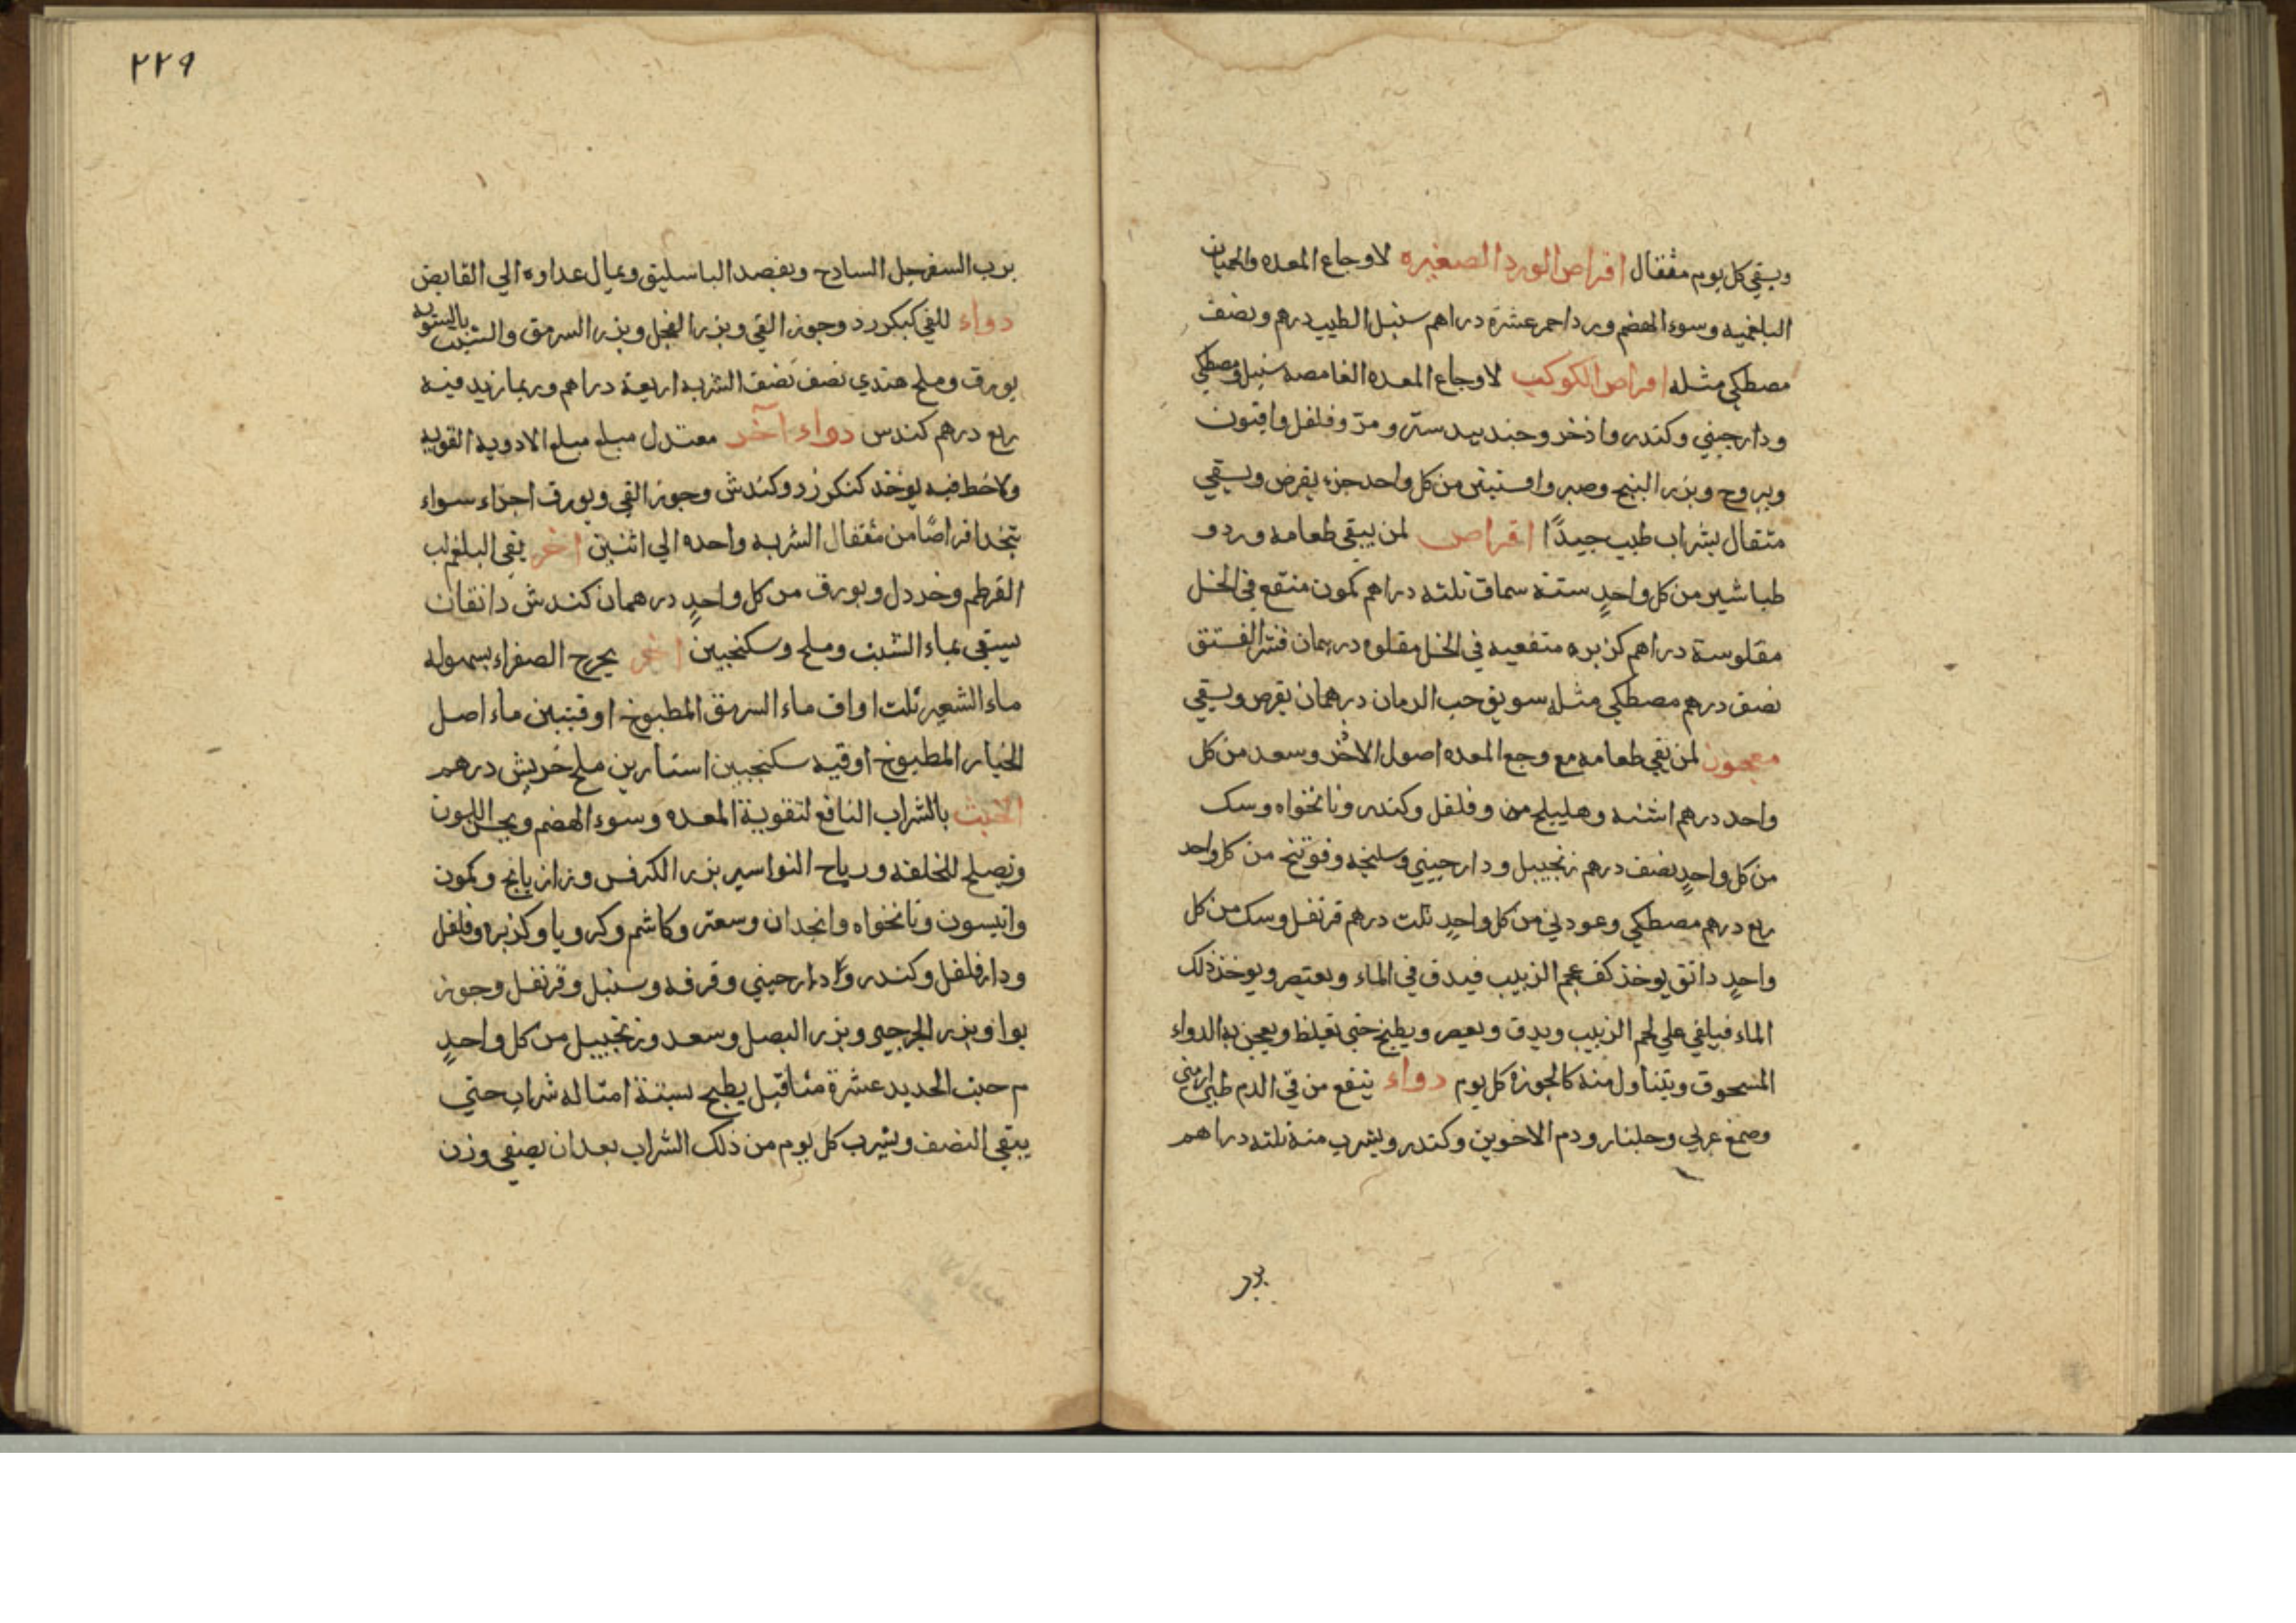 ويسقي كل يوم مثقال اقراص الورد الصغيره لاوجاع المعده والحميات
البلغميه وسوء الهضم ورد احمر عشرة دراهم سنبل الطيب درهم ونصف
مصطكي مثله اقراص الكوكب لاوجاع المعده الغامضه سنبل ومصطكي
ودارجيني وكندر واذخر وجندبيدستر ومر وفلفل وافيون
ويبروح وبزر البنج وصبر وافسنتين من كل واحد جزء يقرض ويسقي
مثقال بشراب طيب جيدًا اقراص لمن يبقي طعامه ورد و
طباشير من كل واحدٍ ستة سماق ثلثه دراهم كمون منقع في الخل
مقلو ستة دراهم كزبره منقعيه في الخل مقلوه درهمان قشر الفستق
نصف درهم مصطكي مثله سويق حب الرمان درهمان يقرص ويسقي
معجون لمن يقي طعامه مع وجع المعده اصول الاذخر وسعد من كل
واحد درهم اشنه وهليلج من وفلفل وكندر ونانخواه وسك
من كل واحدٍ نصف درهم زنجبيل ودارجيني وسليخه وفوتنج من كل واحد
ربع درهم مصطكي وعود ني من كل واحدٍ ثلث درهم قرنفل وسك من كل
واحدٍ دانق يوخذ كف عجم الزبيب فيدق في الماء ويعتصر ويوخذ ذلك
الماء فيلقي علي لحم الزبيب ويدق ويعصر ويطبخ حتي يغلظ ويعجن به الدواء
المسحوق ويتناول منه كالجوزه كل يوم دواء ينفع من قي الدم طين ارمني
وصمغ عربي وجلنار ودم الاخوين وكندر ويشرب منه ثلثه دراهم
برب
٢٢٩
برب السفرجل الساذج ويفصد الباسليق ويمال غداوه الي القابض
دواء للقي كنكرزد وجوز القي وبزر الفجل وبزر السرمق والشبت بالسويه
بورق وملح هندي نصف نصف الشربه اربعة دراهم وربما زيد فيه
ربع درهم كندس دواء آخر معتدل مبلغ مبلغ الادويه القويه
ولا خطر فيه يوخذ كنكرزد وكندش وجوز القي وبورق اجزاء سواء
تتخذ اقراصًا من مثقال الشربه واحده الي اثنين اخر يقي البلغم لب
القرطم وخردل وبورق من كل واحدٍ درهمان كندش دانقان
يسقي بماء الشبت وملح وسكنجبين اخر يخرج الصفراء بسهوله
ماء الشعير ثلث اواق ماء السرمق المطبوخ اوقيتين ماء اصل
الخيار المطبوخ اوقيه سكنجبين استارين ملح جريش درهم
الخبث بالشراب النافع لتقوية المعده وسوء الهضم ويحسن اللون
ويصلح للخلفه ورياح النواسير بزر الكرفس ورازيانج وكمون
وانيسون ونانخواه وانجدان وسعتر وكاشم وكرويا وكزبره وفلفل
ودارفلفل وكندر ودارجيني وقرفه وسنبل وقرنفل وجوز
بوا وبزر الجرجير وبزر البصل وسعد وزنجبيل من كل واحدٍ
م خبث الحديد عشرة مثاقيل يطبخ بستة امثاله شراب حتي
يبقي النصف ويشرب كل يوم من ذلك الشراب بعد ان يصفي وزن